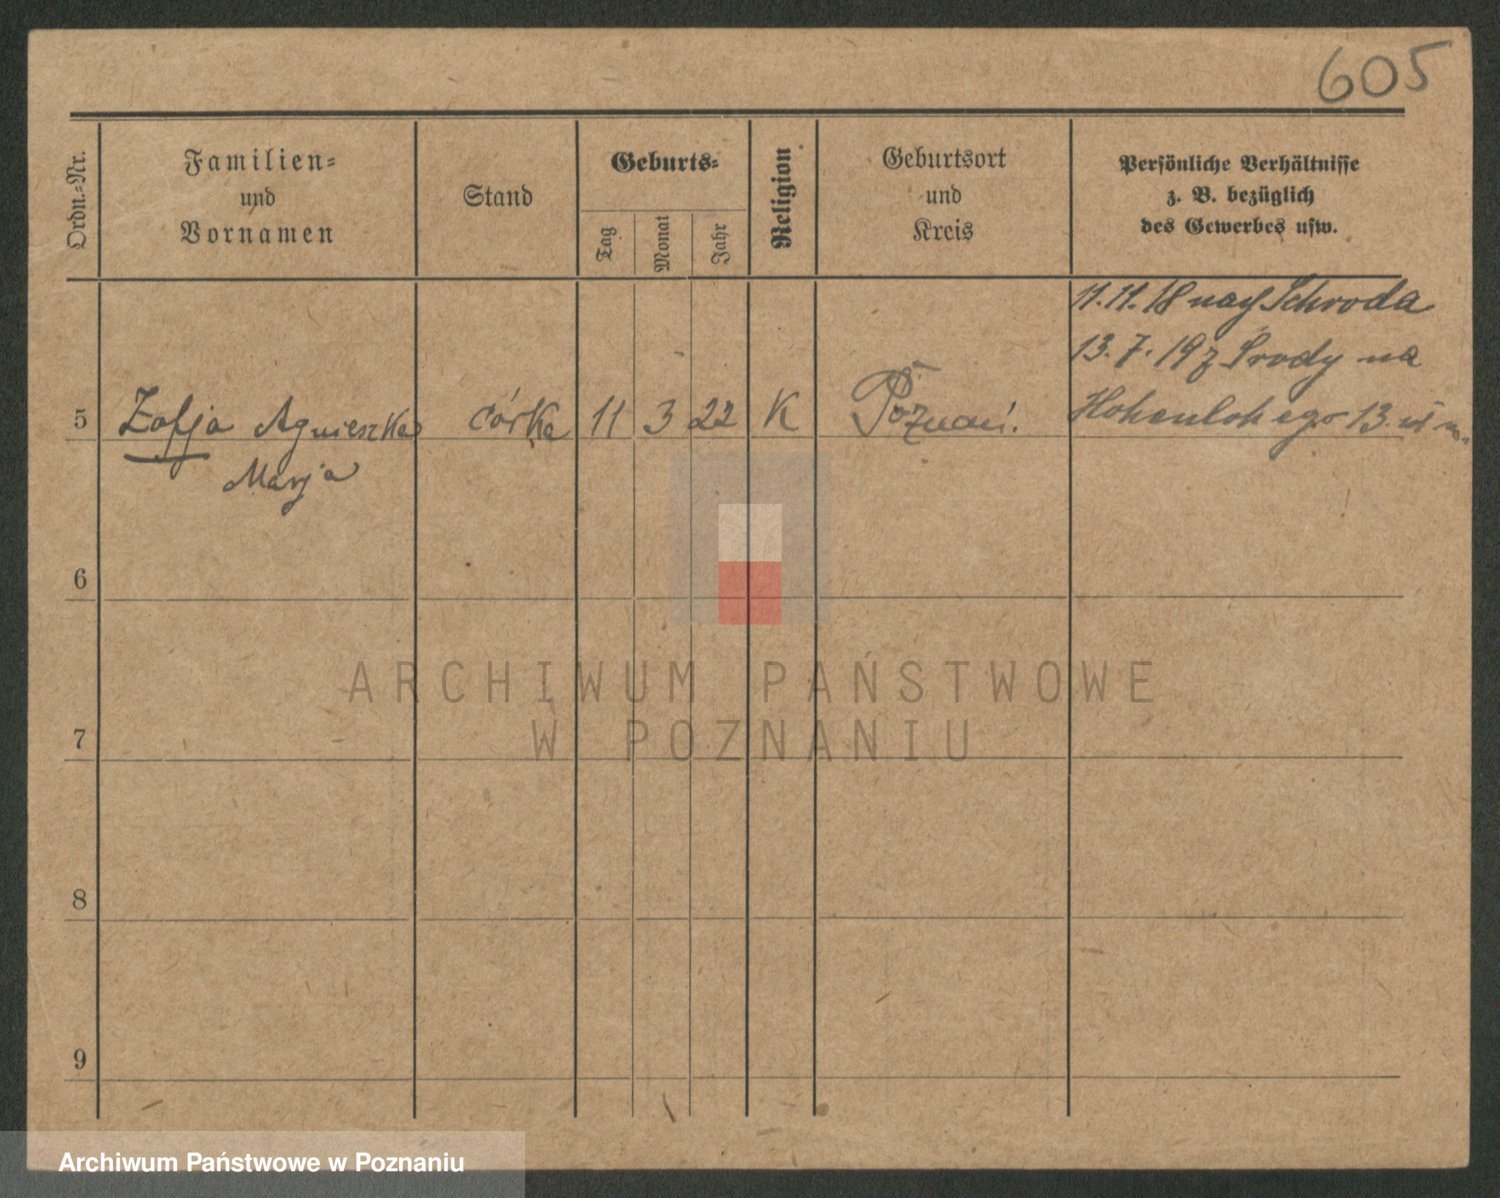 605
Ordn.-Nr.
Familien-
und
Vornamen
Stand
Geburts-
Tag
Monat
Jahr
Religion
Geburtsort
und
Kreis
Persönliche Verhältnisse
z. B. bezüglich
des Gewerbes usw.
11.11.18 nach Schroda
13.7.19 z Środy na
Hohenlohego 13.
5 Zofja Agnieszka córka 11 3 22 K Poznań.
Marja
6
ARCHIWUM PAŃSTWOWE
W POZNANIU
7
8
9
Archiwum Państwowe w Poznaniu